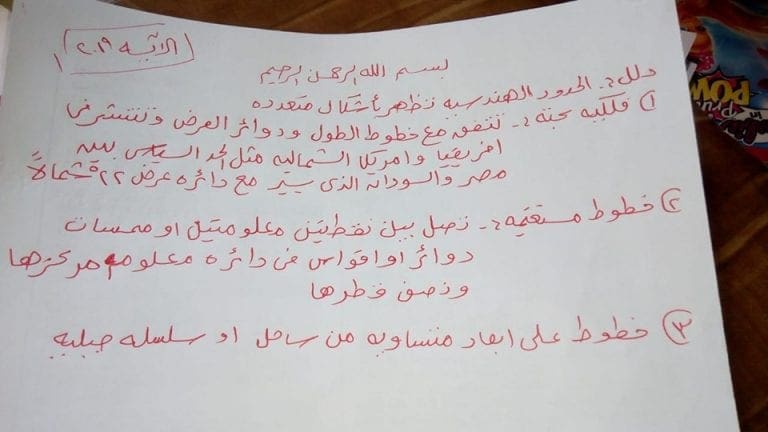 الآتيه ٢٠١٩
١
بسم الله الرحمن الرحيم
دلل :- الحدود الهندسيه تظهر بأشكال متعدده
١ فلكيه بحتة :- تتفق مع خطوط الطول ودوائر العرض وتنتشر فى
افريقيا وامريكا الشماليه مثل الحد السياسى بين
مصر والسودان الذى يسير مع دائره عرض ٢٢ ْ شمالاً
٢ خطوط مستقيمه :- تصل بين نقطتين معلومتين او مماسات
دوائر او اقواس فى دائره معلوم مركزها
ونصف قطرها
٣ خطوط على ابعاد متساويه من ساحل او سلسله جبليه
POW